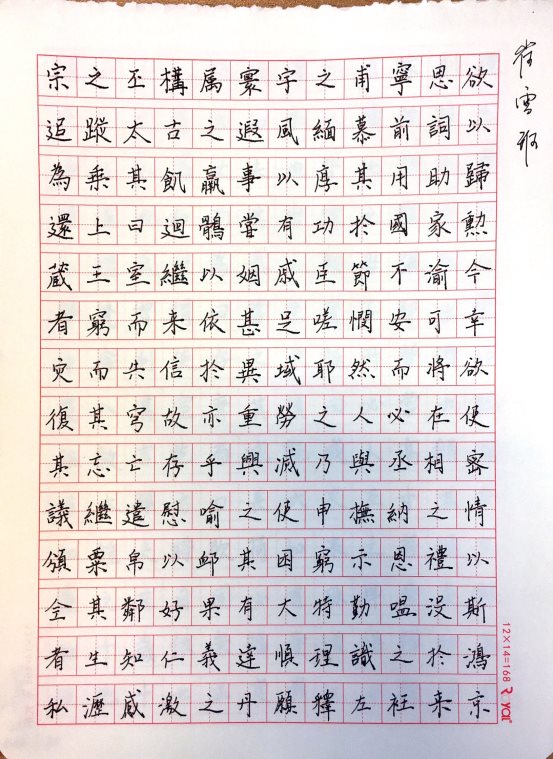 宗之丕構属寰宇之甫寧思欲
追蹤太古之遐風緬慕前詞以
為乗其飢羸事以厚其用助歸
還上曰迴鶻嘗有功於國家勲
蔵王室繼以姻戚臣節不渝今
者窮而来依甚足嗟憫安可幸
灾而失信於異域耶然而將欲
復其穹故亦重勞之人必在使
其忘亡存乎興滅乃與丞相密
議繼遣慰喻之使申撫納之情
頒粟帛以卹其困窮示恩禮以
全其鄰好果有大特勤嗢没斯
者生知仁義達順理識之於鴻
私瀝感激之丹願釋左衽来京
崔雪
12×14=168